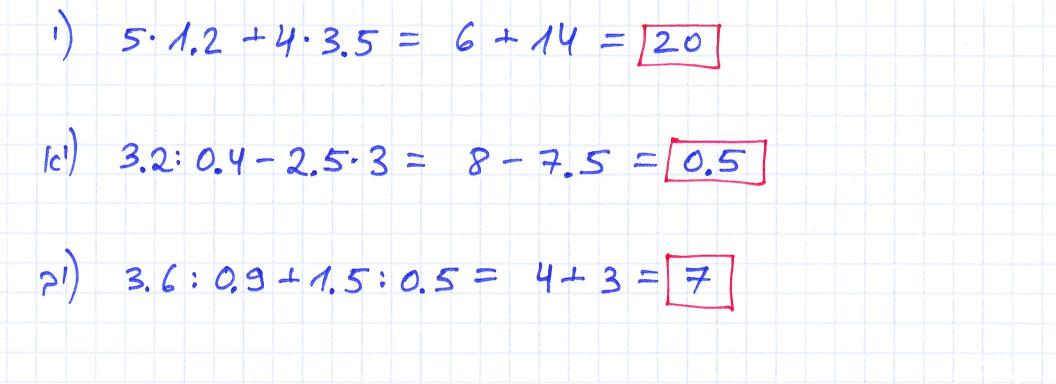 י) 5·1.2+4·3.5 = 6+14 = 20
יא) 3.2:0.4-2.5·3 = 8-7.5 = 0.5
יב) 3.6:0.9+1.5:0.5 = 4+3 = 7